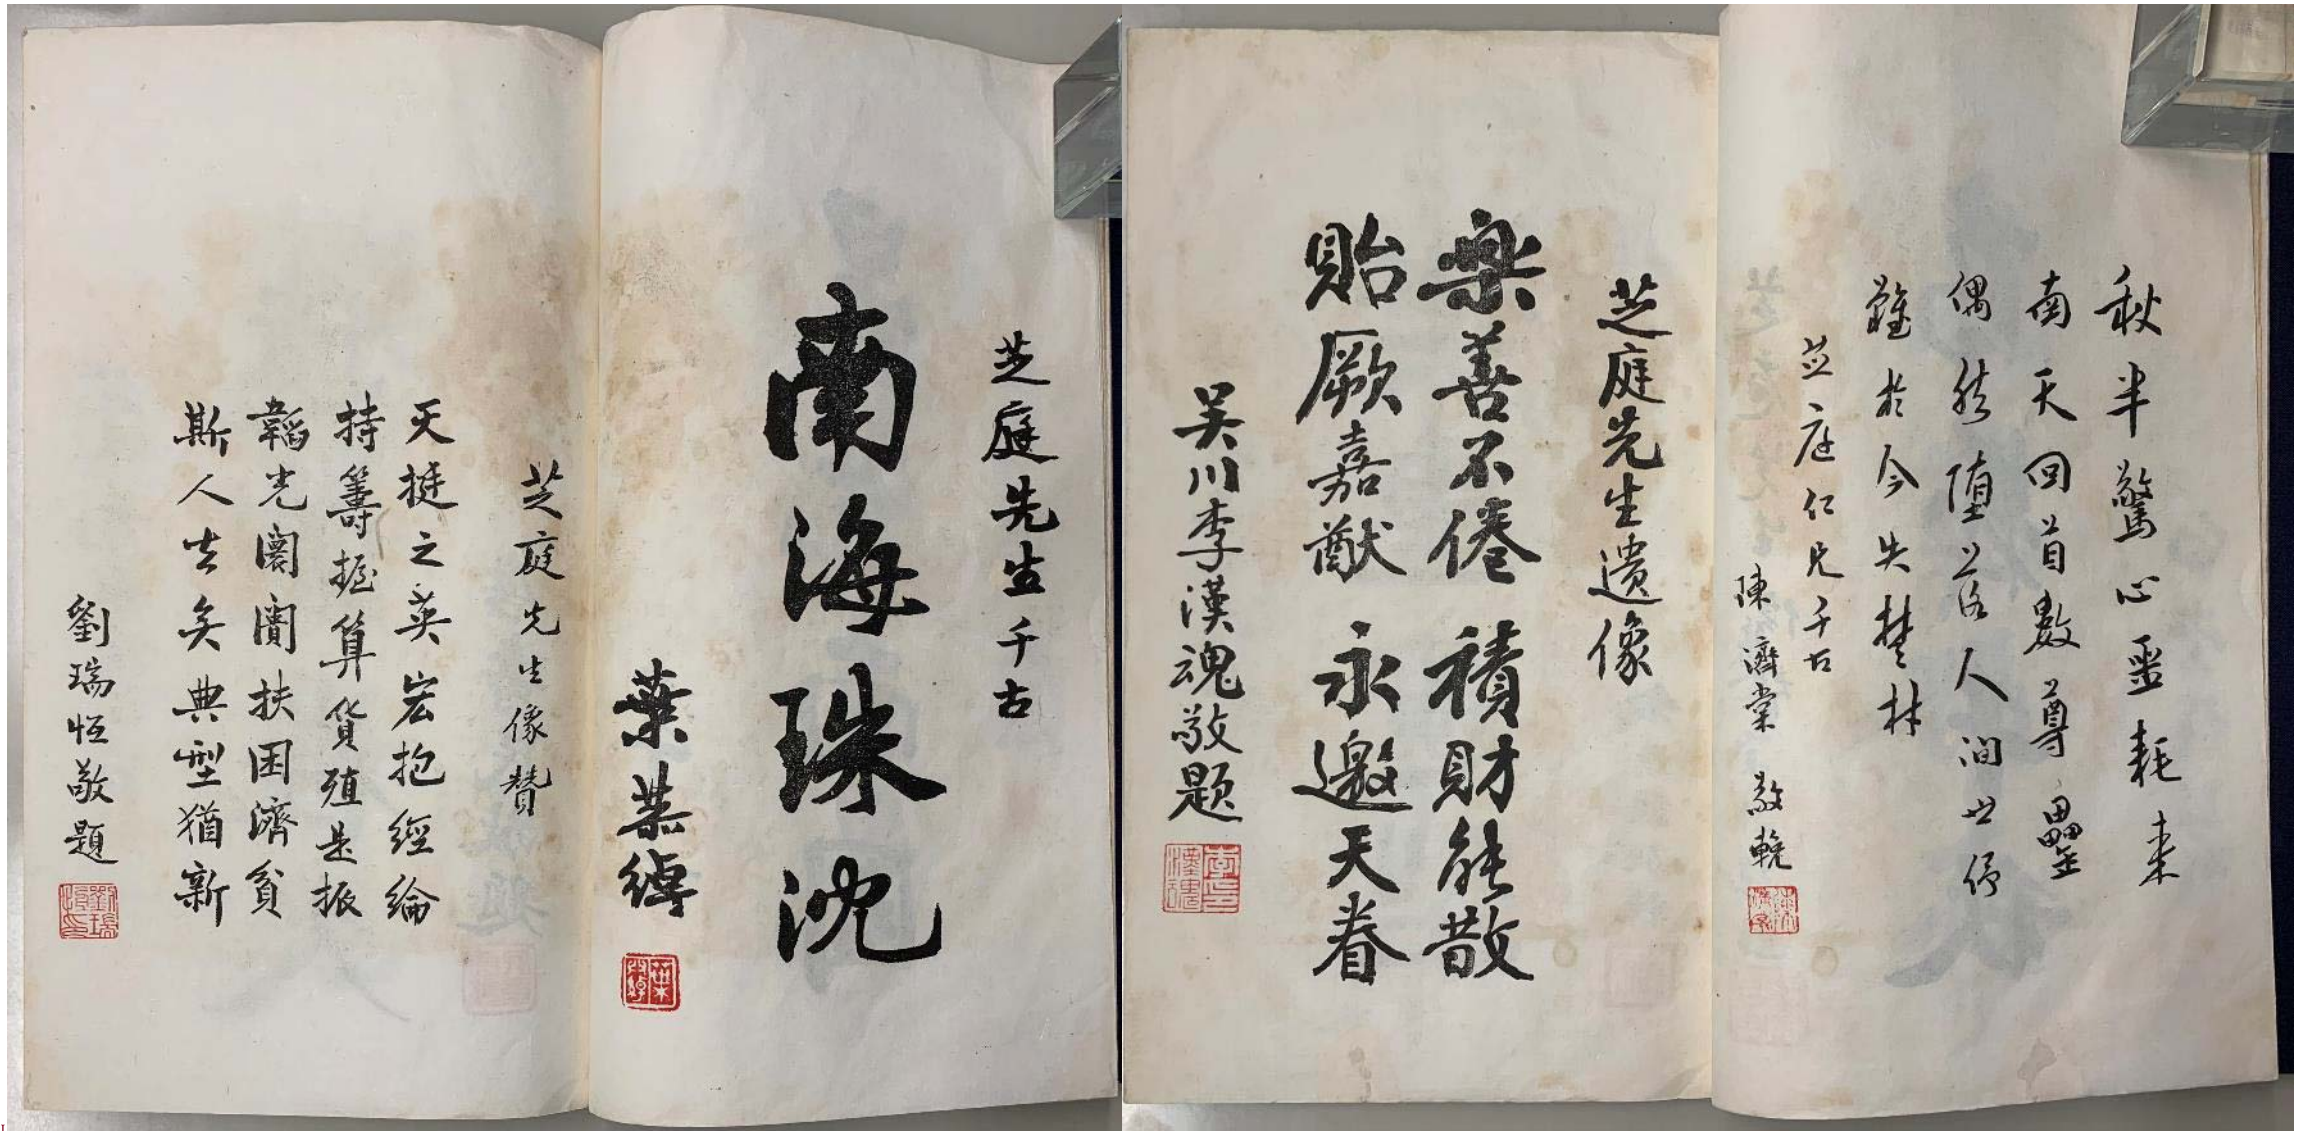 秋半驚心噩耗来
南天回首數尊罍
偶然墮落人间世
難於今失楚材
芝庭仁兄千古
陳濟棠 敬輓
芝庭先生遺像
樂善不倦 積財能散
貽厥嘉猷 永邀天眷
吴川李漢魂敬題
芝庭先生千古
南海珠沈
葉恭綽
芝庭先生像贊
天挺之英宏抱經綸
持籌握算貨殖是振
韜光闤闠扶困濟貧
斯人去矣典型猶新
劉瑞恒敬題